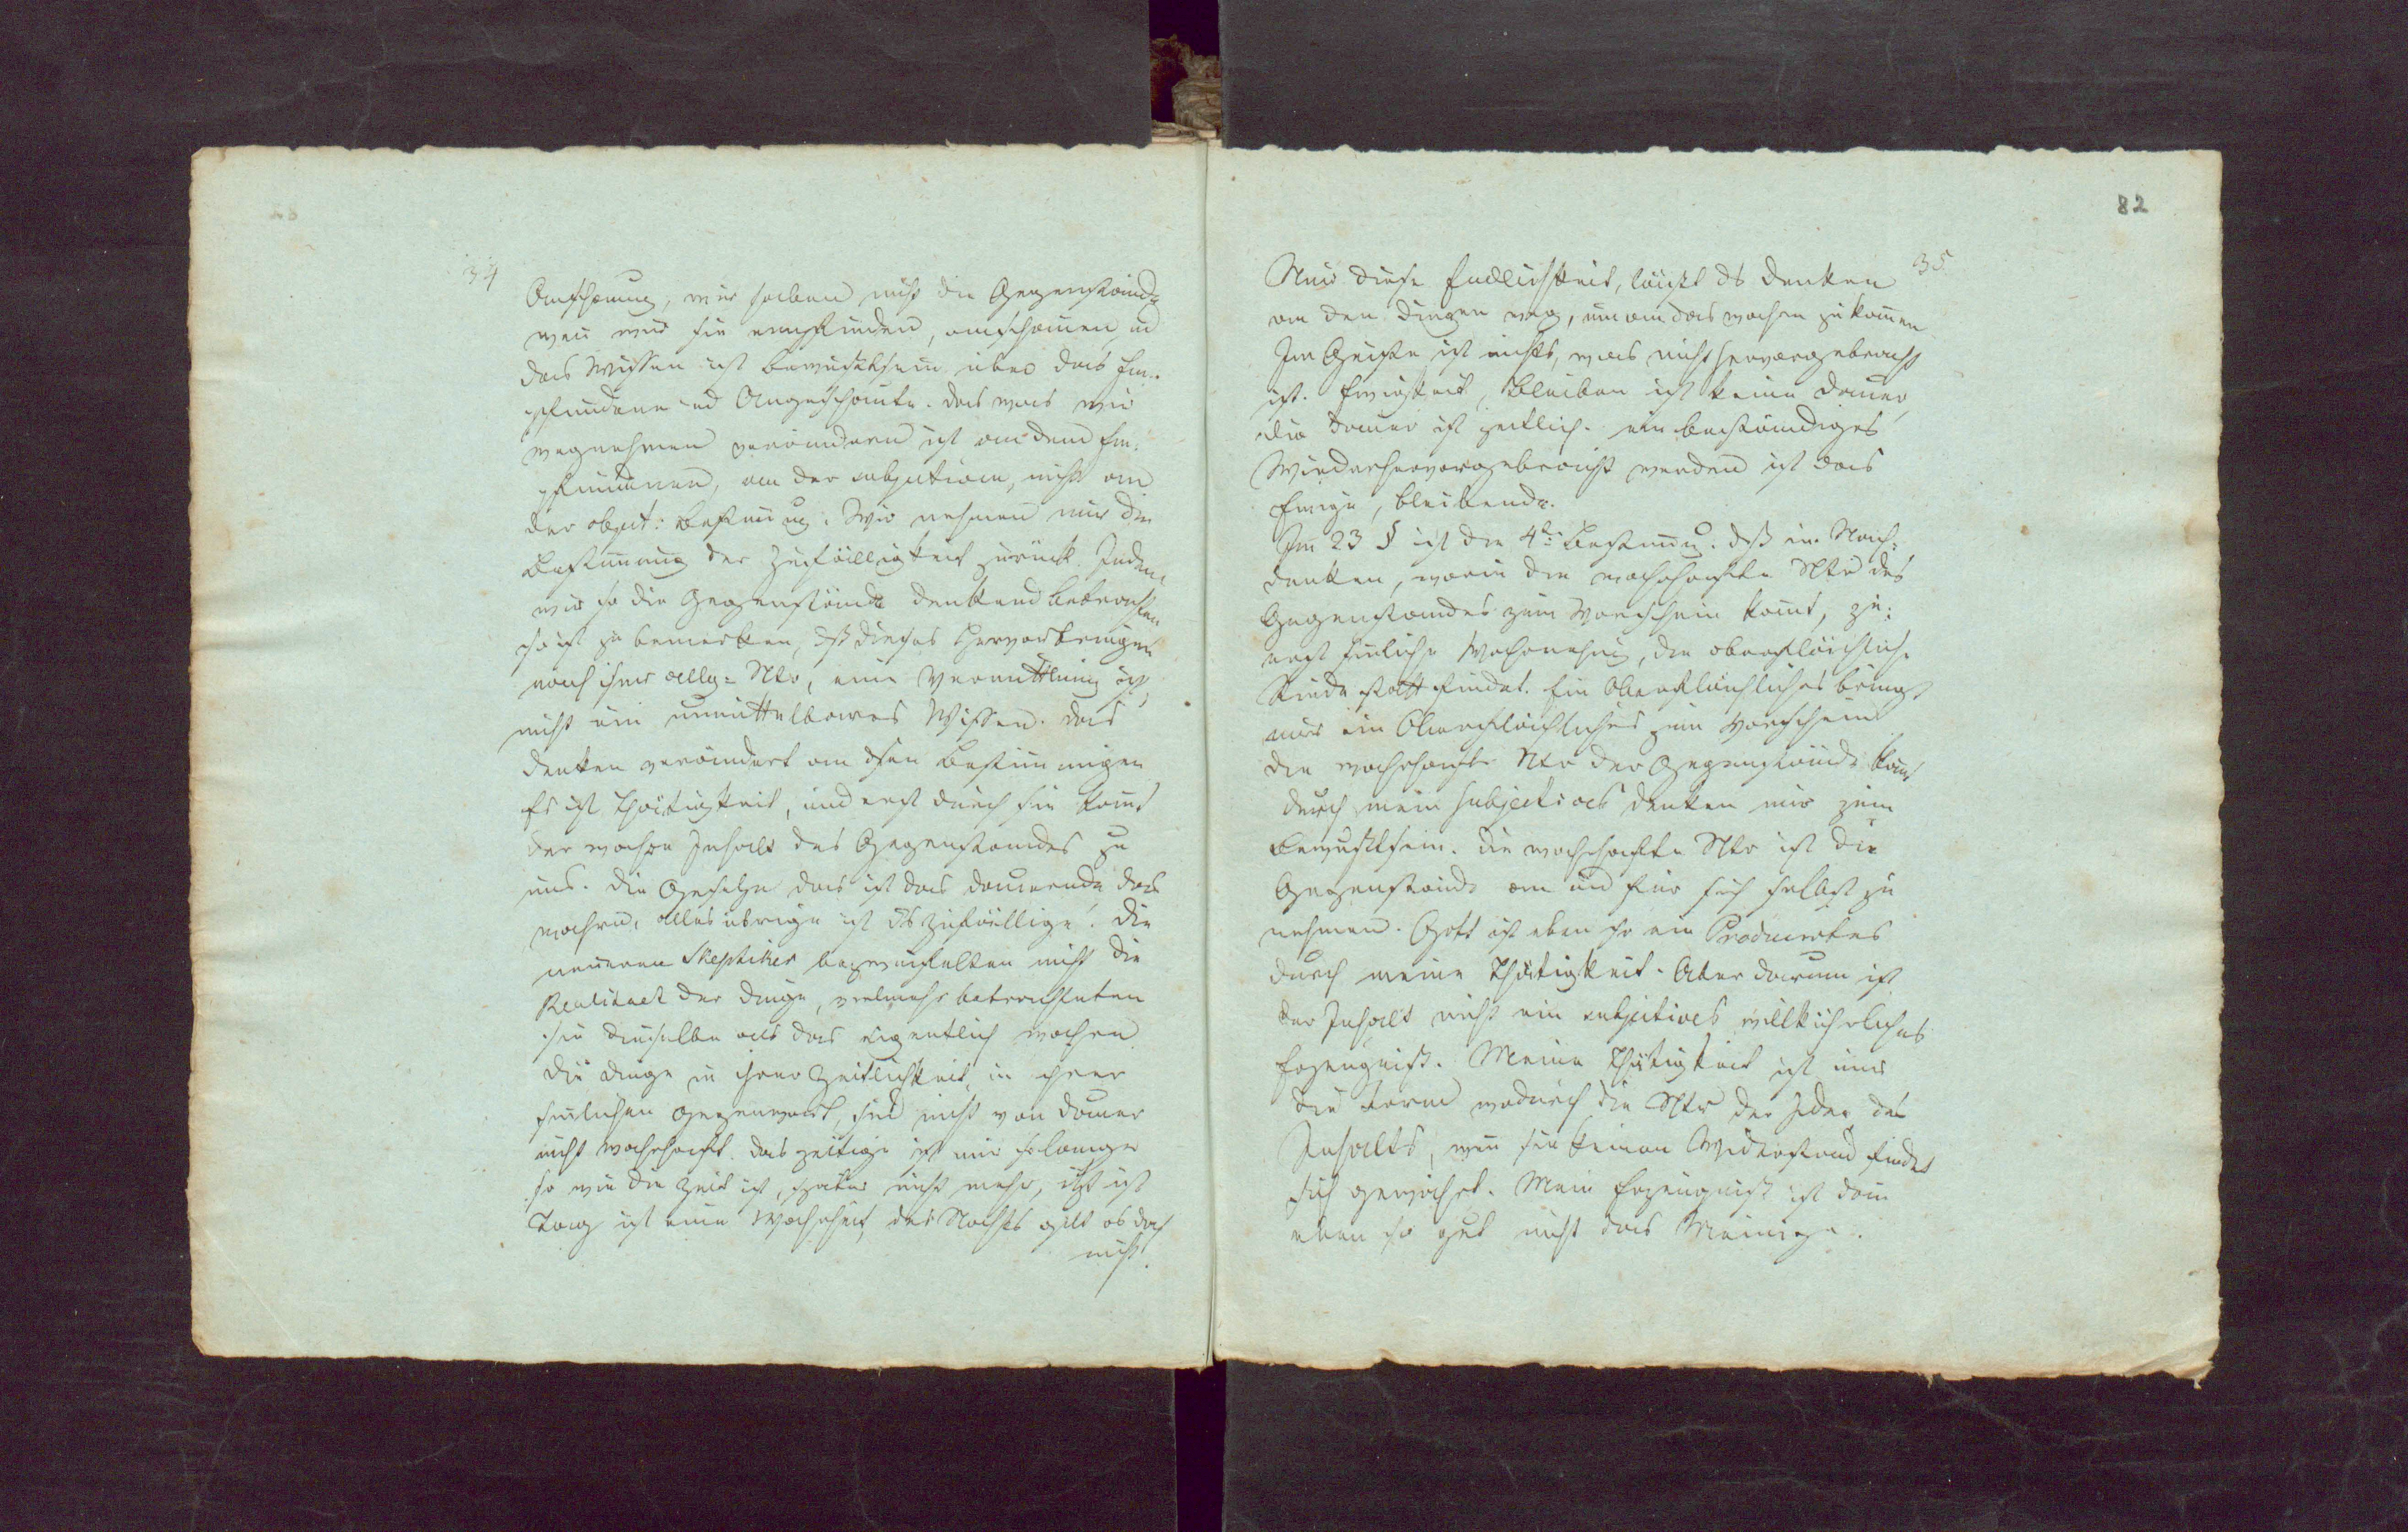 34
Anschauung, wir haben nicht die Gegenstände
wenn wir sie empfinden, anschauen, und
das Wissen ist Bewußtsein über das Em-
pfundene und Angeschaute. Das was wir
wegnehmen verändern ist an dem Em-
pfundenen, an der subjectiven, nicht an
der object: Bestimmung. Wir nehmen nur die
Bestimmung der Zufälligkeit zurück. Indem
wir so die Gegenstände denkend betrachten
so ist zu bemerken, dß dieses Hervorbringen
nach ihrer allg: Ntr, eine Vermittlung ist,
nicht ein unmittelbares Wissen. Das
Denken verändert an den Bestimmungen
Es ist Thätigkeit, und erst durch sie komt
der wahre Inhalt des Gegenstandes zu
uns. Die Gesetze das ist das dauernde das
wahre, alles übrige ist ds zufällige. Die
neueren Skeptiker bezweifelten nicht die
Realitaet der Dinge, vielmehr betrachteten
sie dieselbe als das eigentlich wahre.
Die Dinge in ihrer Zeitlichkeit, in ihrer
sinlichen Gegenwart, sind nicht von Dauer
nicht wahrhaft. Das zeitige ist nur so lange
so wie die Zeit ist, später nicht mehr, itzt ist
Tag ist eine Wahrheit, des Nachts gilt es doch
nicht.
82
35
Nur diese Endlichkeit, läußt ds Denken
an den Dingen weg, um an das wahre zu komen
Im Geiste ist nichts, was nicht hervorgebracht
ist. Ewigkeit, Bleiben ist keine Dauer,
die Dauer ist zeitlich. ein beständiges
Wiederhervorgebracht werden ist das
Ewige, bleibende.
Im 23 § ist die 4te Bestimung. dß im Nach-
denken, worin die wahrhafte Ntr des
Gegenstandes zum Vorschein komt, zu-
erst sinliche Wahrnehmung, die oberflächliche
Rinde statt findet. Ein Oberflächliches bringt
nur ein Oberflächliches zum Vorschein
die wahrhafte Ntr der Gegenstände komt
durch mein subjectives Denken mir zum
Bewußtsein. Die wahrhafte Ntr ist die
Gegenstände an und für sich selbst zu
nehmen. Gott ist eben so ein Producirtes
durch meine Thätigkeit. Aber darum ist
der Inhalt nicht ein subjectives willkührliches
Erzeugniß. Meine Thätigkeit ist nur
die Form wodurch die Ntr der Idee, des
Inhalts, wenn sie keinen Widerstand findet
sich gewährt. Mein Erzeugniß ist dan
eben so gut nicht das Meinige.